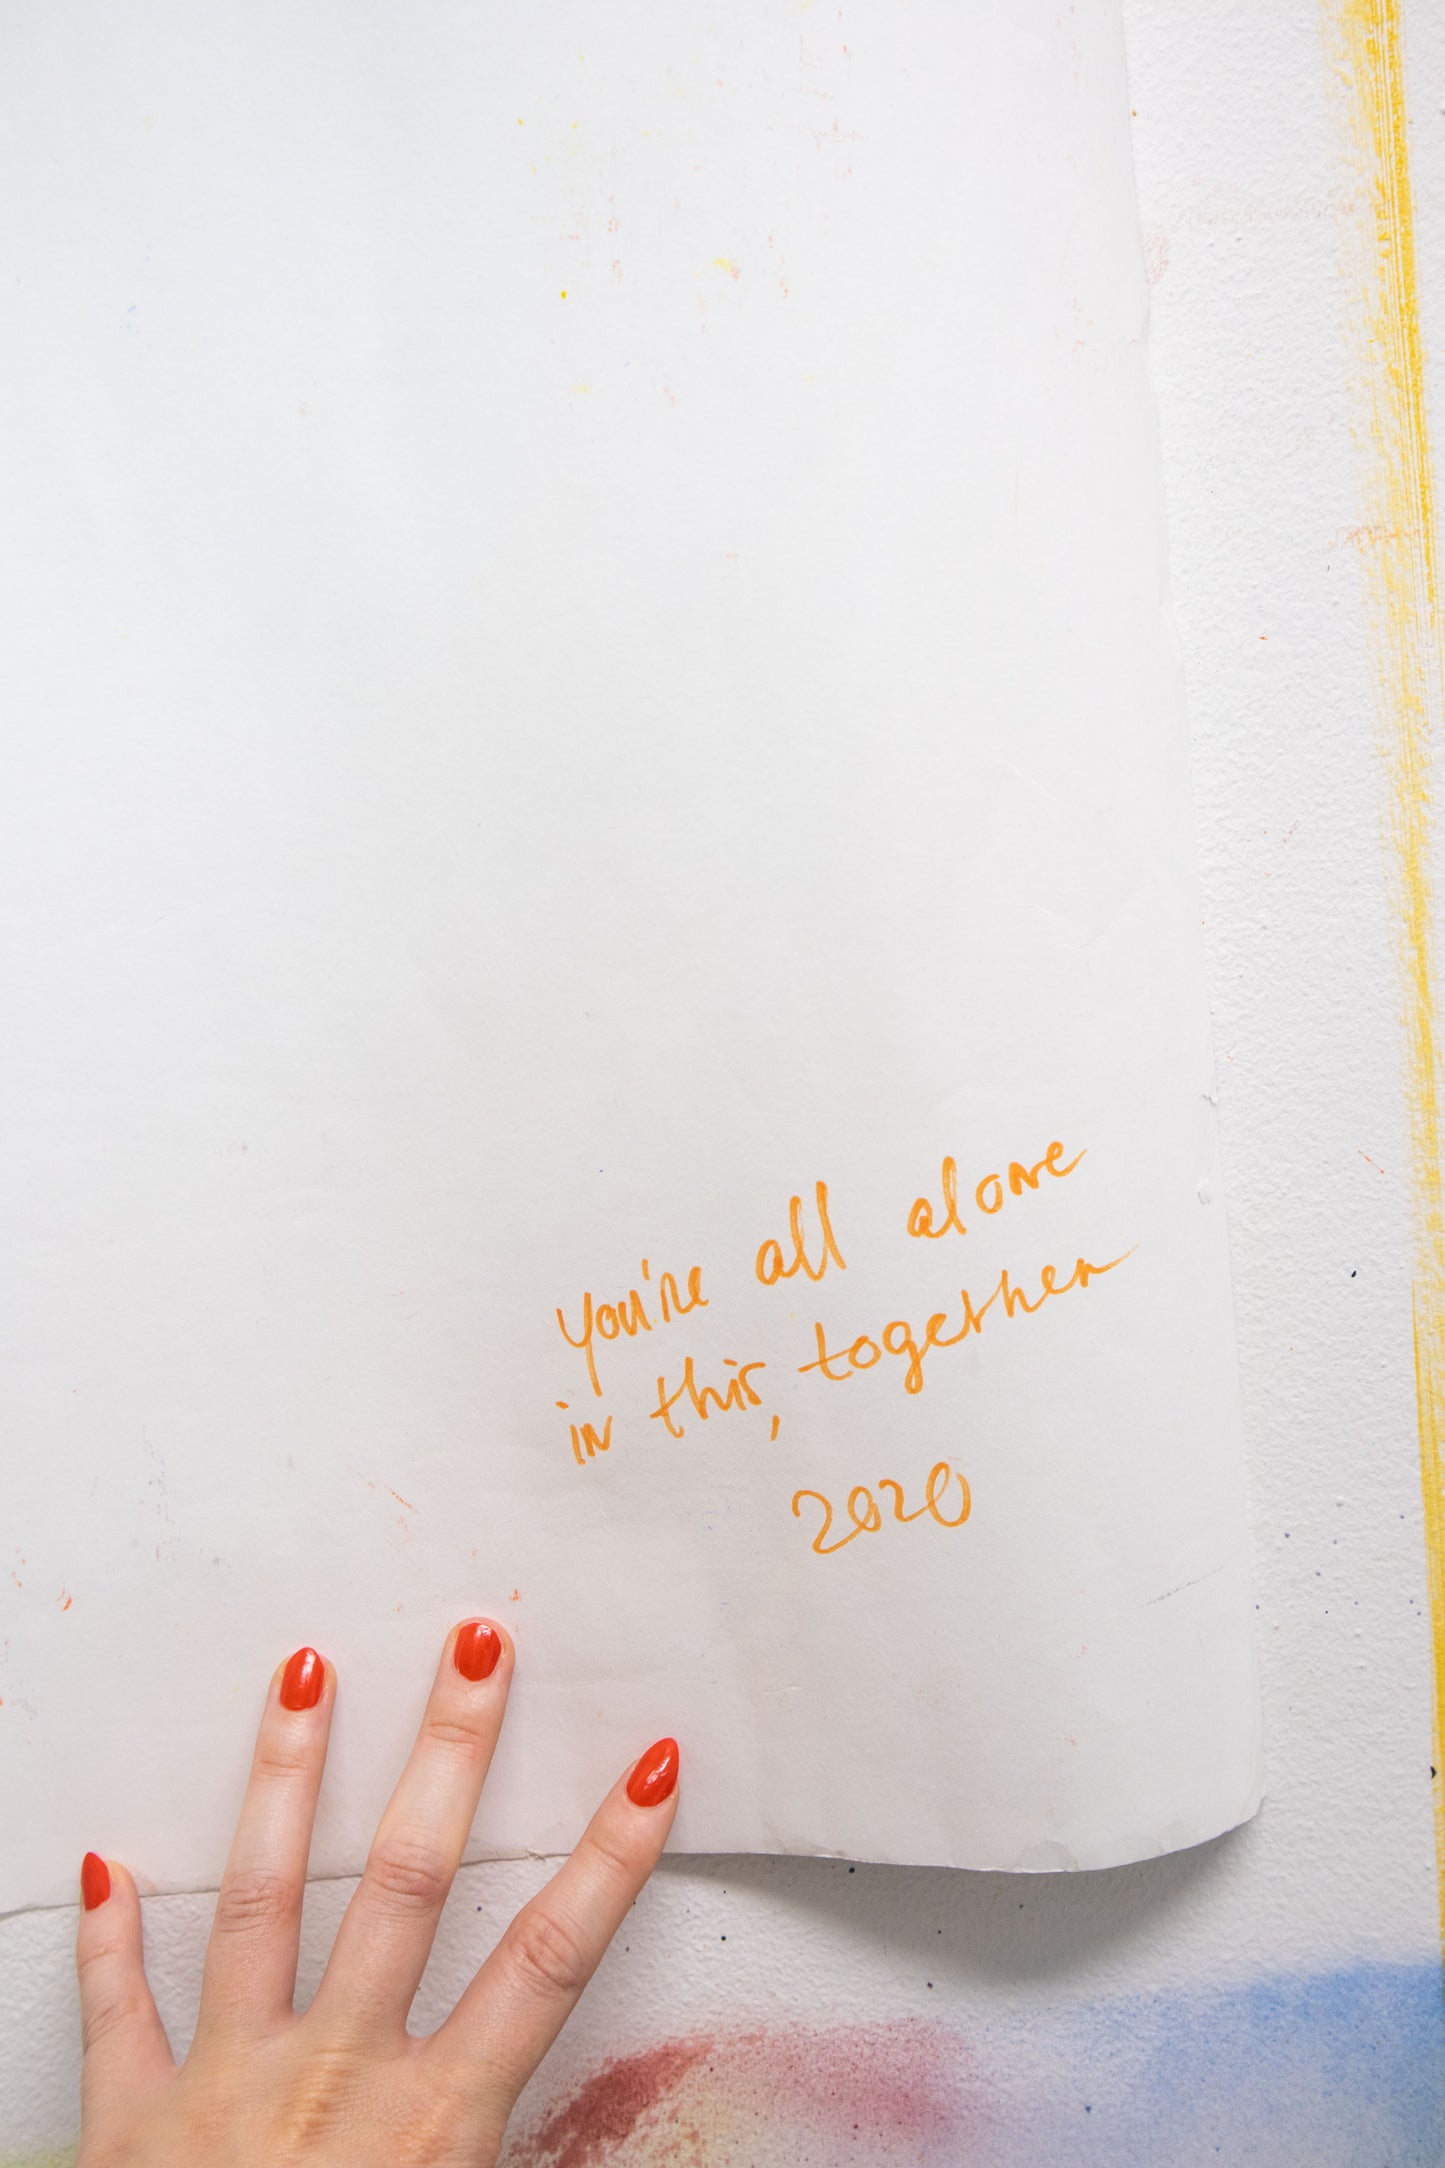 you're all alone
in this, together
2020